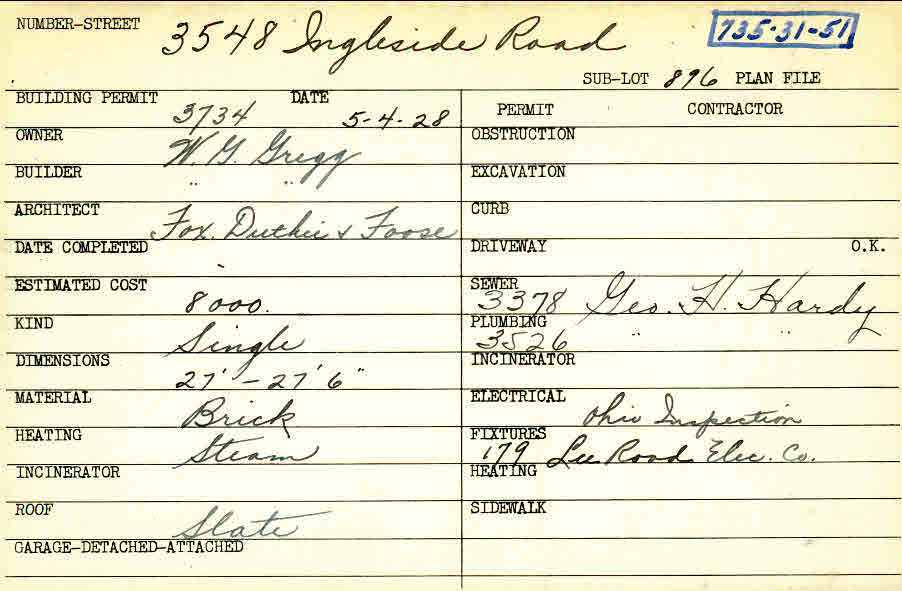 NUMBER-STREET 3548 Ingleside Road 735-31-51
SUB-LOT 896 PLAN FILE
BUILDING PERMIT 3734 DATE 5-4-28 PERMIT CONTRACTOR
OWNER W. G. Gregg OBSTRUCTION
BUILDER " " EXCAVATION
ARCHITECT Fox. Duthie & Foose CURB
DATE COMPLETED DRIVEWAY O.K.
ESTIMATED COST 8000. SEWER 3378 Geo. H. Hardy
KIND Single PLUMBING 3526 " "
DIMENSIONS 27' - 27'6" INCINERATOR
MATERIAL Brick ELECTRICAL Ohio Inspection
HEATING Steam FIXTURES 179 Lee Road Elec. Co.
INCINERATOR HEATING
ROOF Slate SIDEWALK
GARAGE-DETACHED-ATTACHED